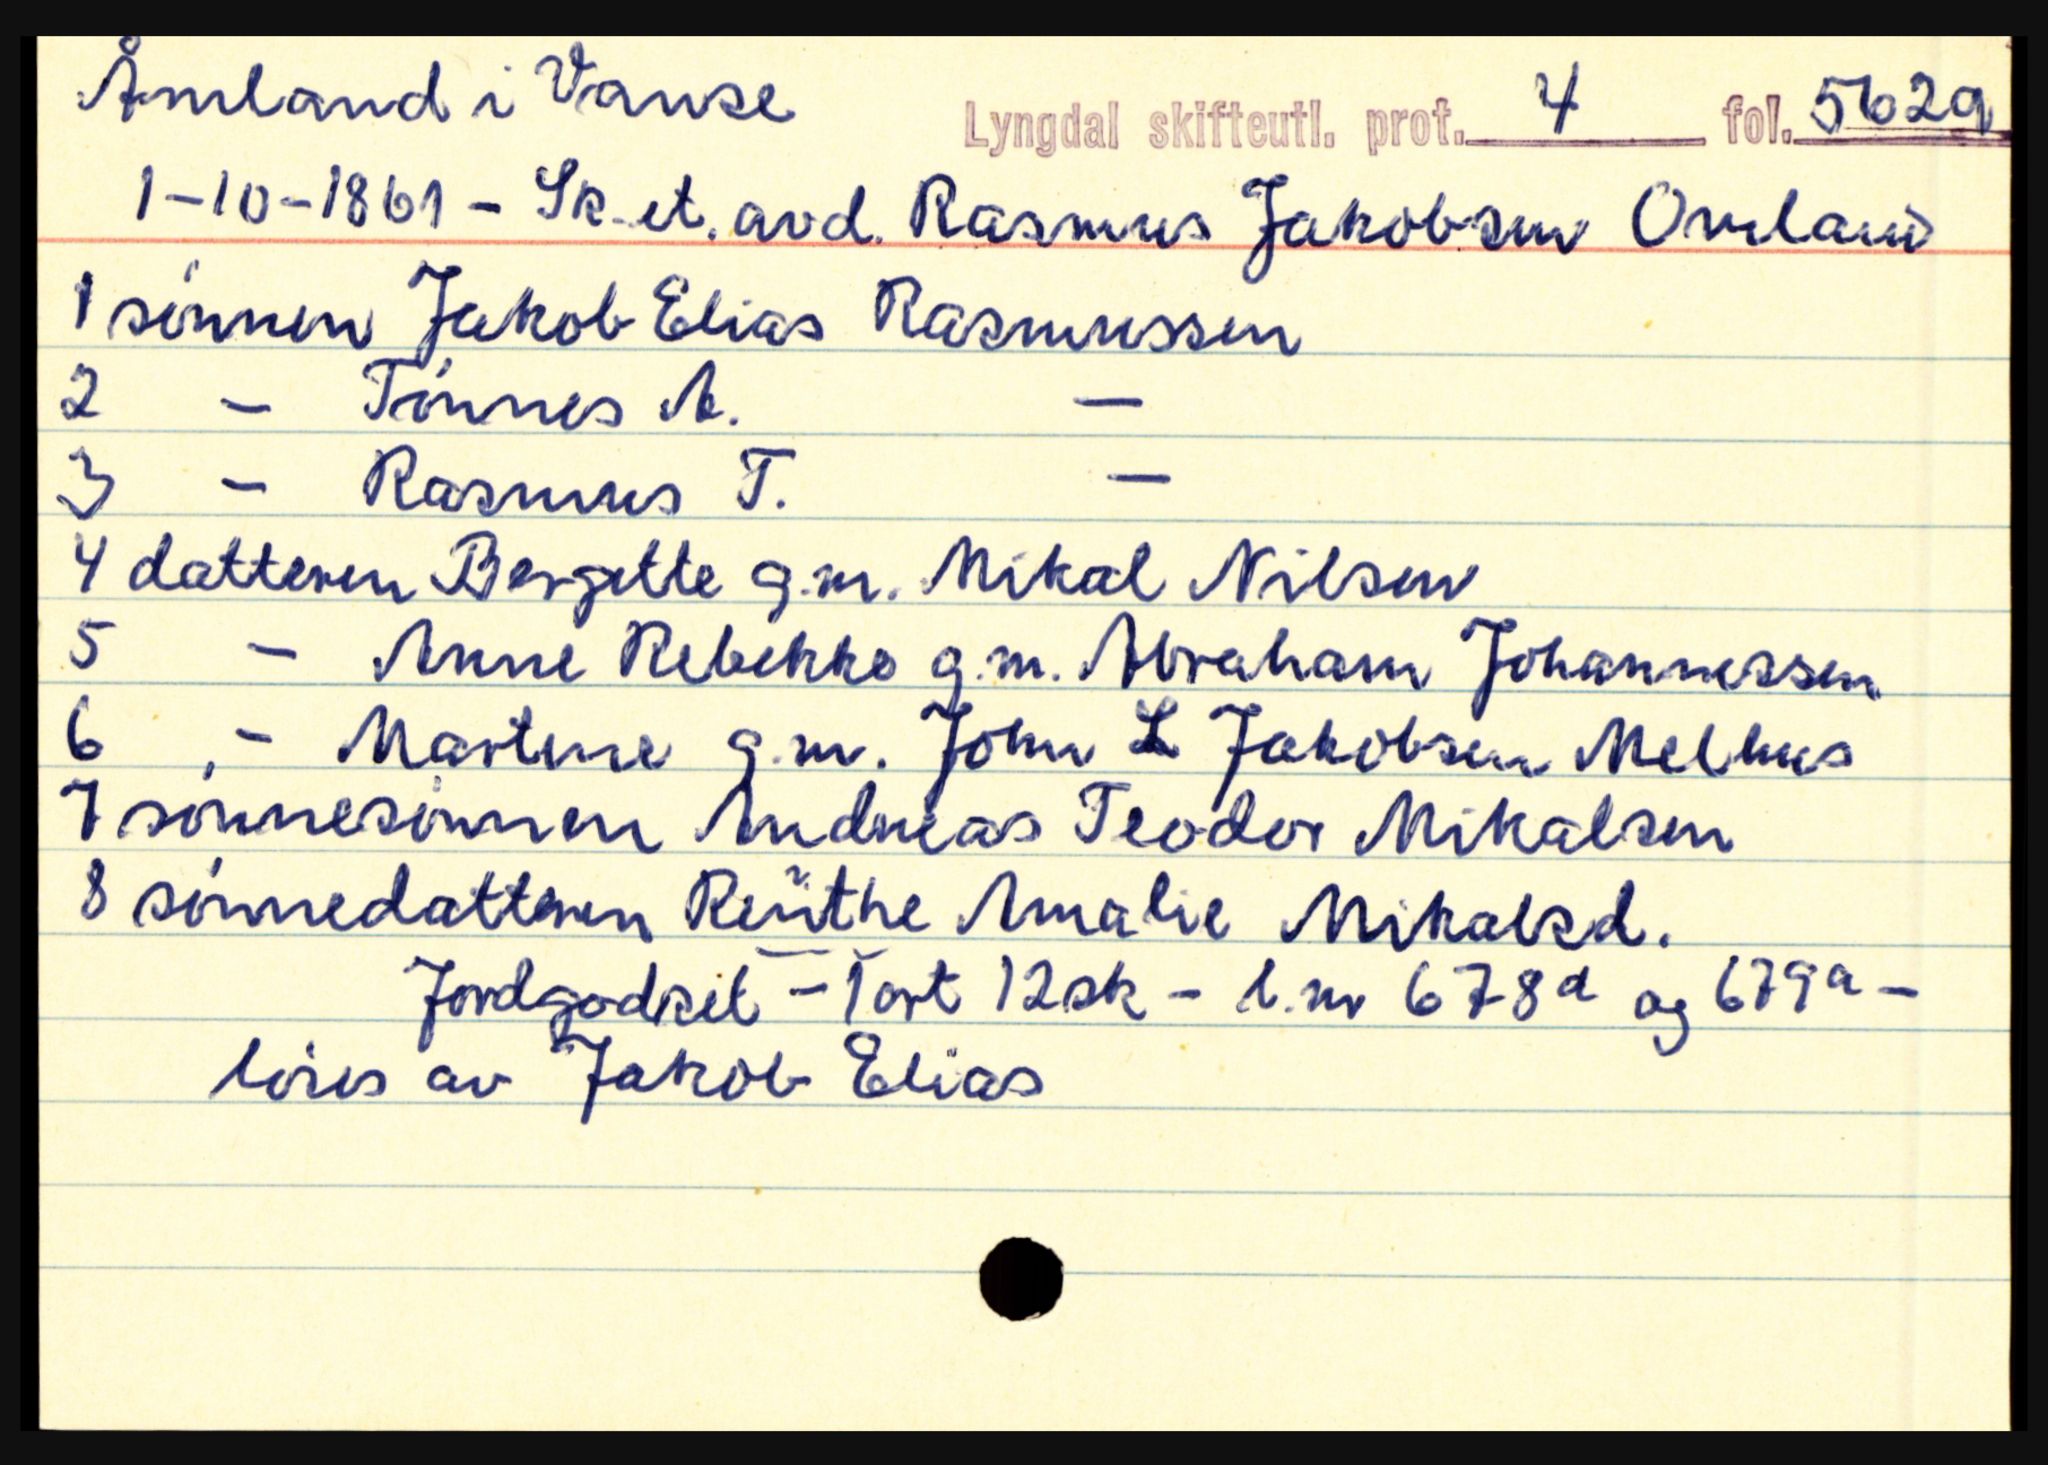 Åmland i Vanse
Lyngdal skifteutl. prot. 4 fol. 562a
1-10-1861 - Sk. et. avd. Rasmus Jakobsen Omland
1 sønnen Jakob Elias Rasmussen
2 - Tønnes A. -
3 - Rasmus T. -
4 datteren Bergette g.m. Mikal Nilsen
5 - Anne Rebekke g.m. Abraham Johannessen
6 - Martine g.m. John L Jakobsen Melhus
7 sønnesønnen Andreas Teodor Mikalsen
8 sønnedatteren Amalie Mikalsd.
Jordgodset - 1 ort 12 sk - l.nr 678a og 679a -
løses av Jakob Elias